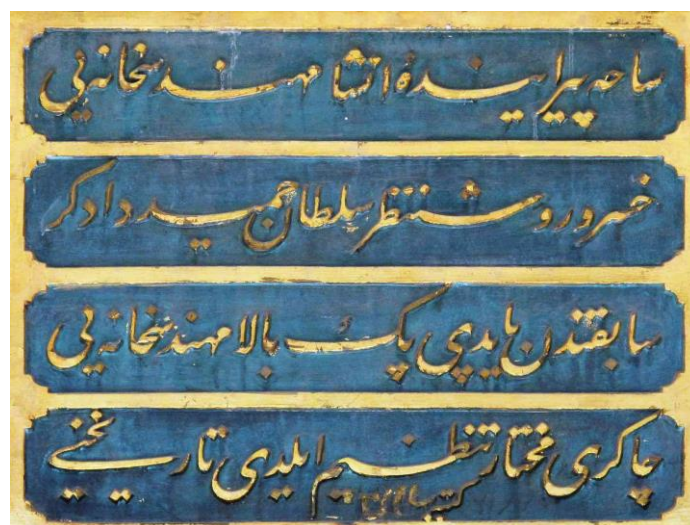 ساحه پیراینده‌ٔ انشا مهندسخانه یی
خسرو روشن نظر سلطان حمید دادگر
سابقندن یاپدی پک بالا مهندسخانه یی
چاکری مختار تنظیم ایلدی تاریخنی